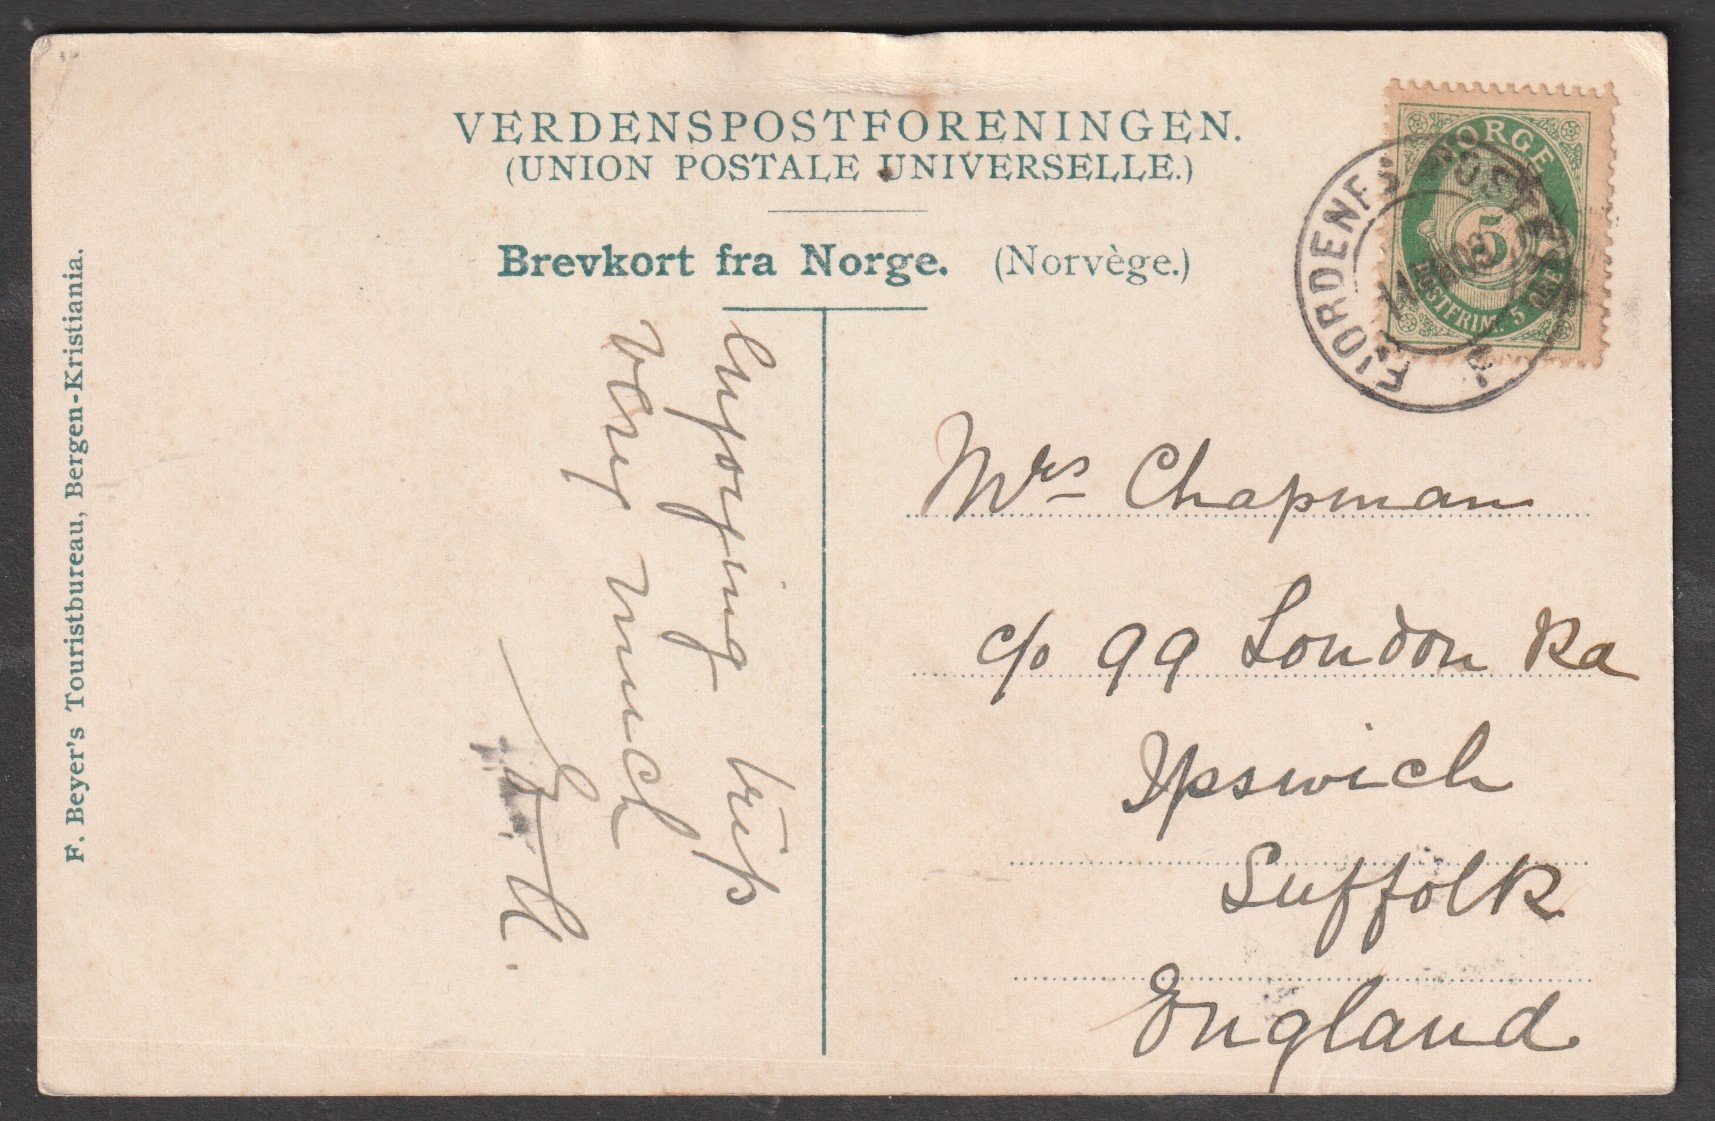 VERDENSPOSTFORENINGEN.
(UNION POSTALE UNIVERSELLE.)
Brevkort fra Norge. (Norvège.)
NORGE
5
POSTFRIM. 5 ØRE
FJORDENES
F. Beyer's Touristbureau, Bergen-Kristiania.
Enjoying trip
very much
Mrs Chapman
c/o 99 London Rd
Ipswich
Suffolk
England